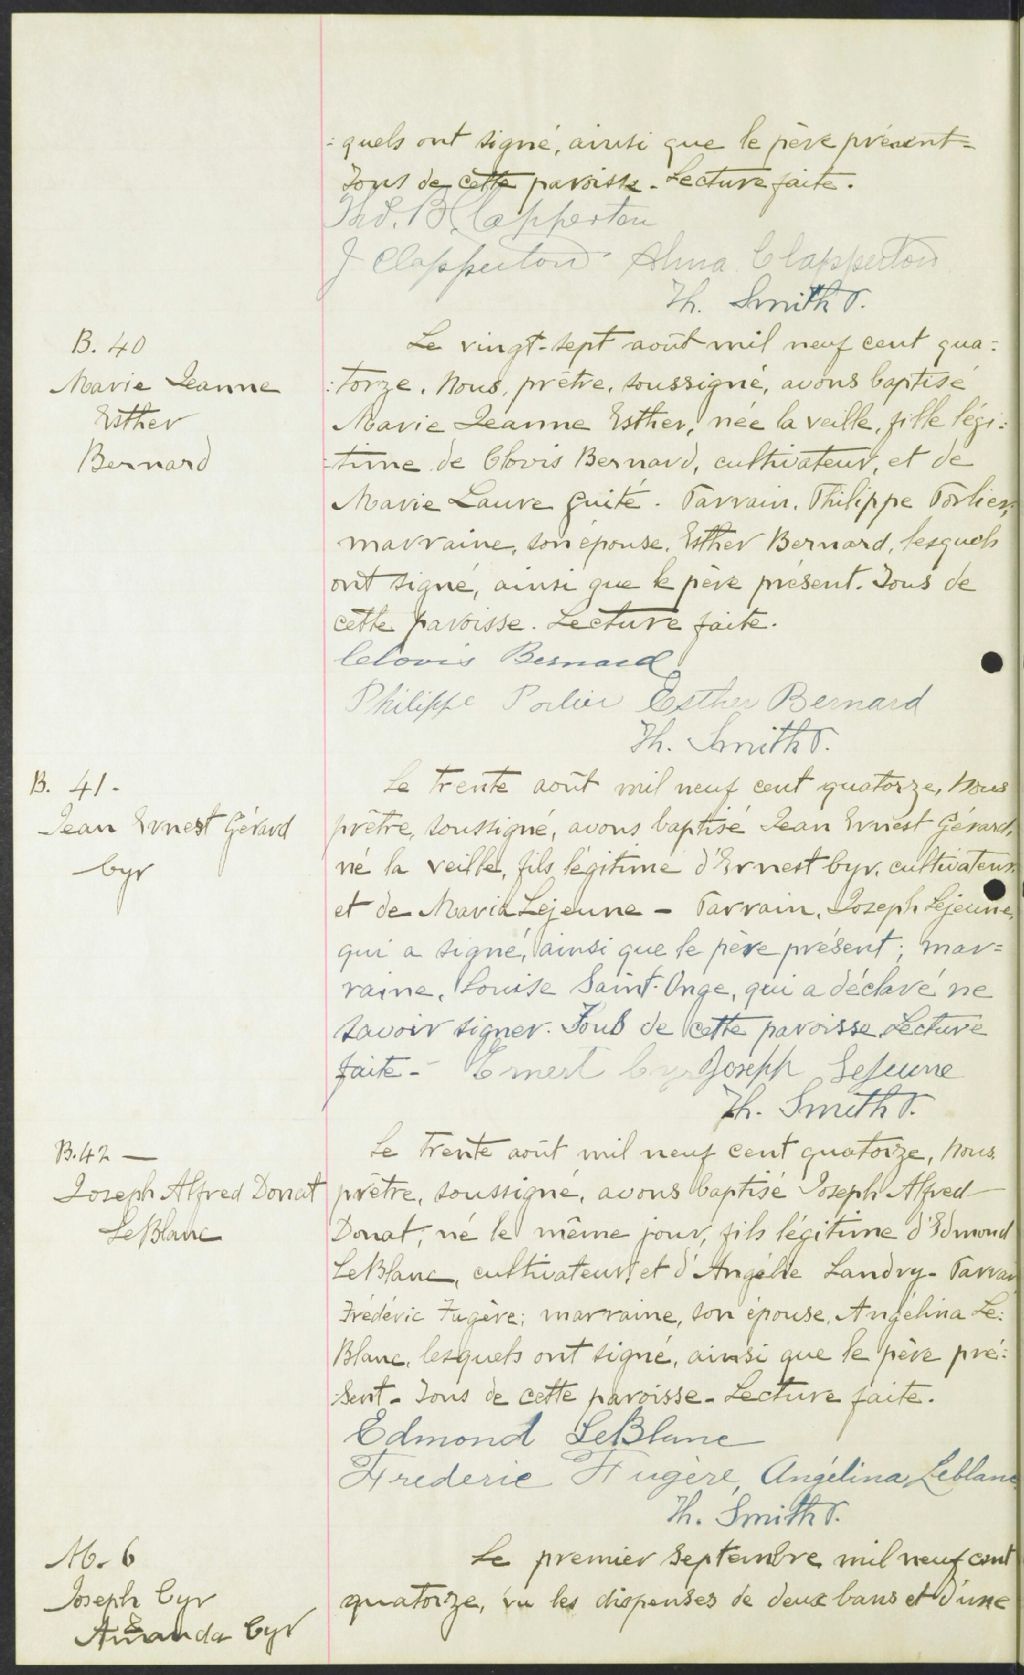 =quels ont signé, ainsi que le père présent=
Tous de cette paroisse - Lecture faite.
Thos. B. Clapperton
J Clapperton Alma Clapperton
Th. Smith P.
B. 40
Marie Jeanne
Esther
Bernard
Le vingt-sept août mil neuf cent qua=
=torze, Nous, prêtre, soussigné, avons baptisé
Marie Jeanne Esther, née la veille, fille légi=
=time de Clovis Bernard, cultivateur, et de
Marie Laure Guité. Parrain, Philippe Poirier,
marraine, son épouse, Esther Bernard, lesquels
ont signé, ainsi que le père présent. Tous de
cette paroisse. Lecture faite.
Clovis Bernard
Philippe Poirier Esther Bernard
Th. Smith P.
B. 41-
Jean Ernest Gérard
Cyr
Le trente août mil neuf cent quatorze, Nous
prêtre, soussigné, avons baptisé Jean Ernest Gérard,
né la veille, fils légitime d'Ernest Cyr, cultivateur,
et de Maria Lejeune - Parrain, Joseph Lejeune,
qui a signé, ainsi que le père présent; mar=
raine, Louise Saint-Onge, qui a déclaré ne
savoir signer. Tous de cette paroisse Lecture
faite - Ernest Cyr Joseph LeJeune
Th. Smith P.
B. 42 —
Joseph Alfred Donat
LeBlanc
Le trente août mil neuf cent quatorze, Nous,
prêtre, soussigné, avons baptisé Joseph Alfred
Donat, né le même jour, fils légitime d'Edmond
LeBlanc, cultivateur, et d'Angélie Landry - Parrai
Frédéric Fugère; marraine, son épouse, Angélina Le=
Blanc, lesquels ont signé, ainsi que le père pré=
=sent - Tous de cette paroisse - Lecture faite.
Edmond LeBlanc
Frederic Fugère, Angélina Leblanc
Th. Smith P.
M. 6
Joseph Cyr
&
Amanda Cyr
Le premier Septembre mil neuf cent
quatorze, vu les dispenses de deux bans et d'une